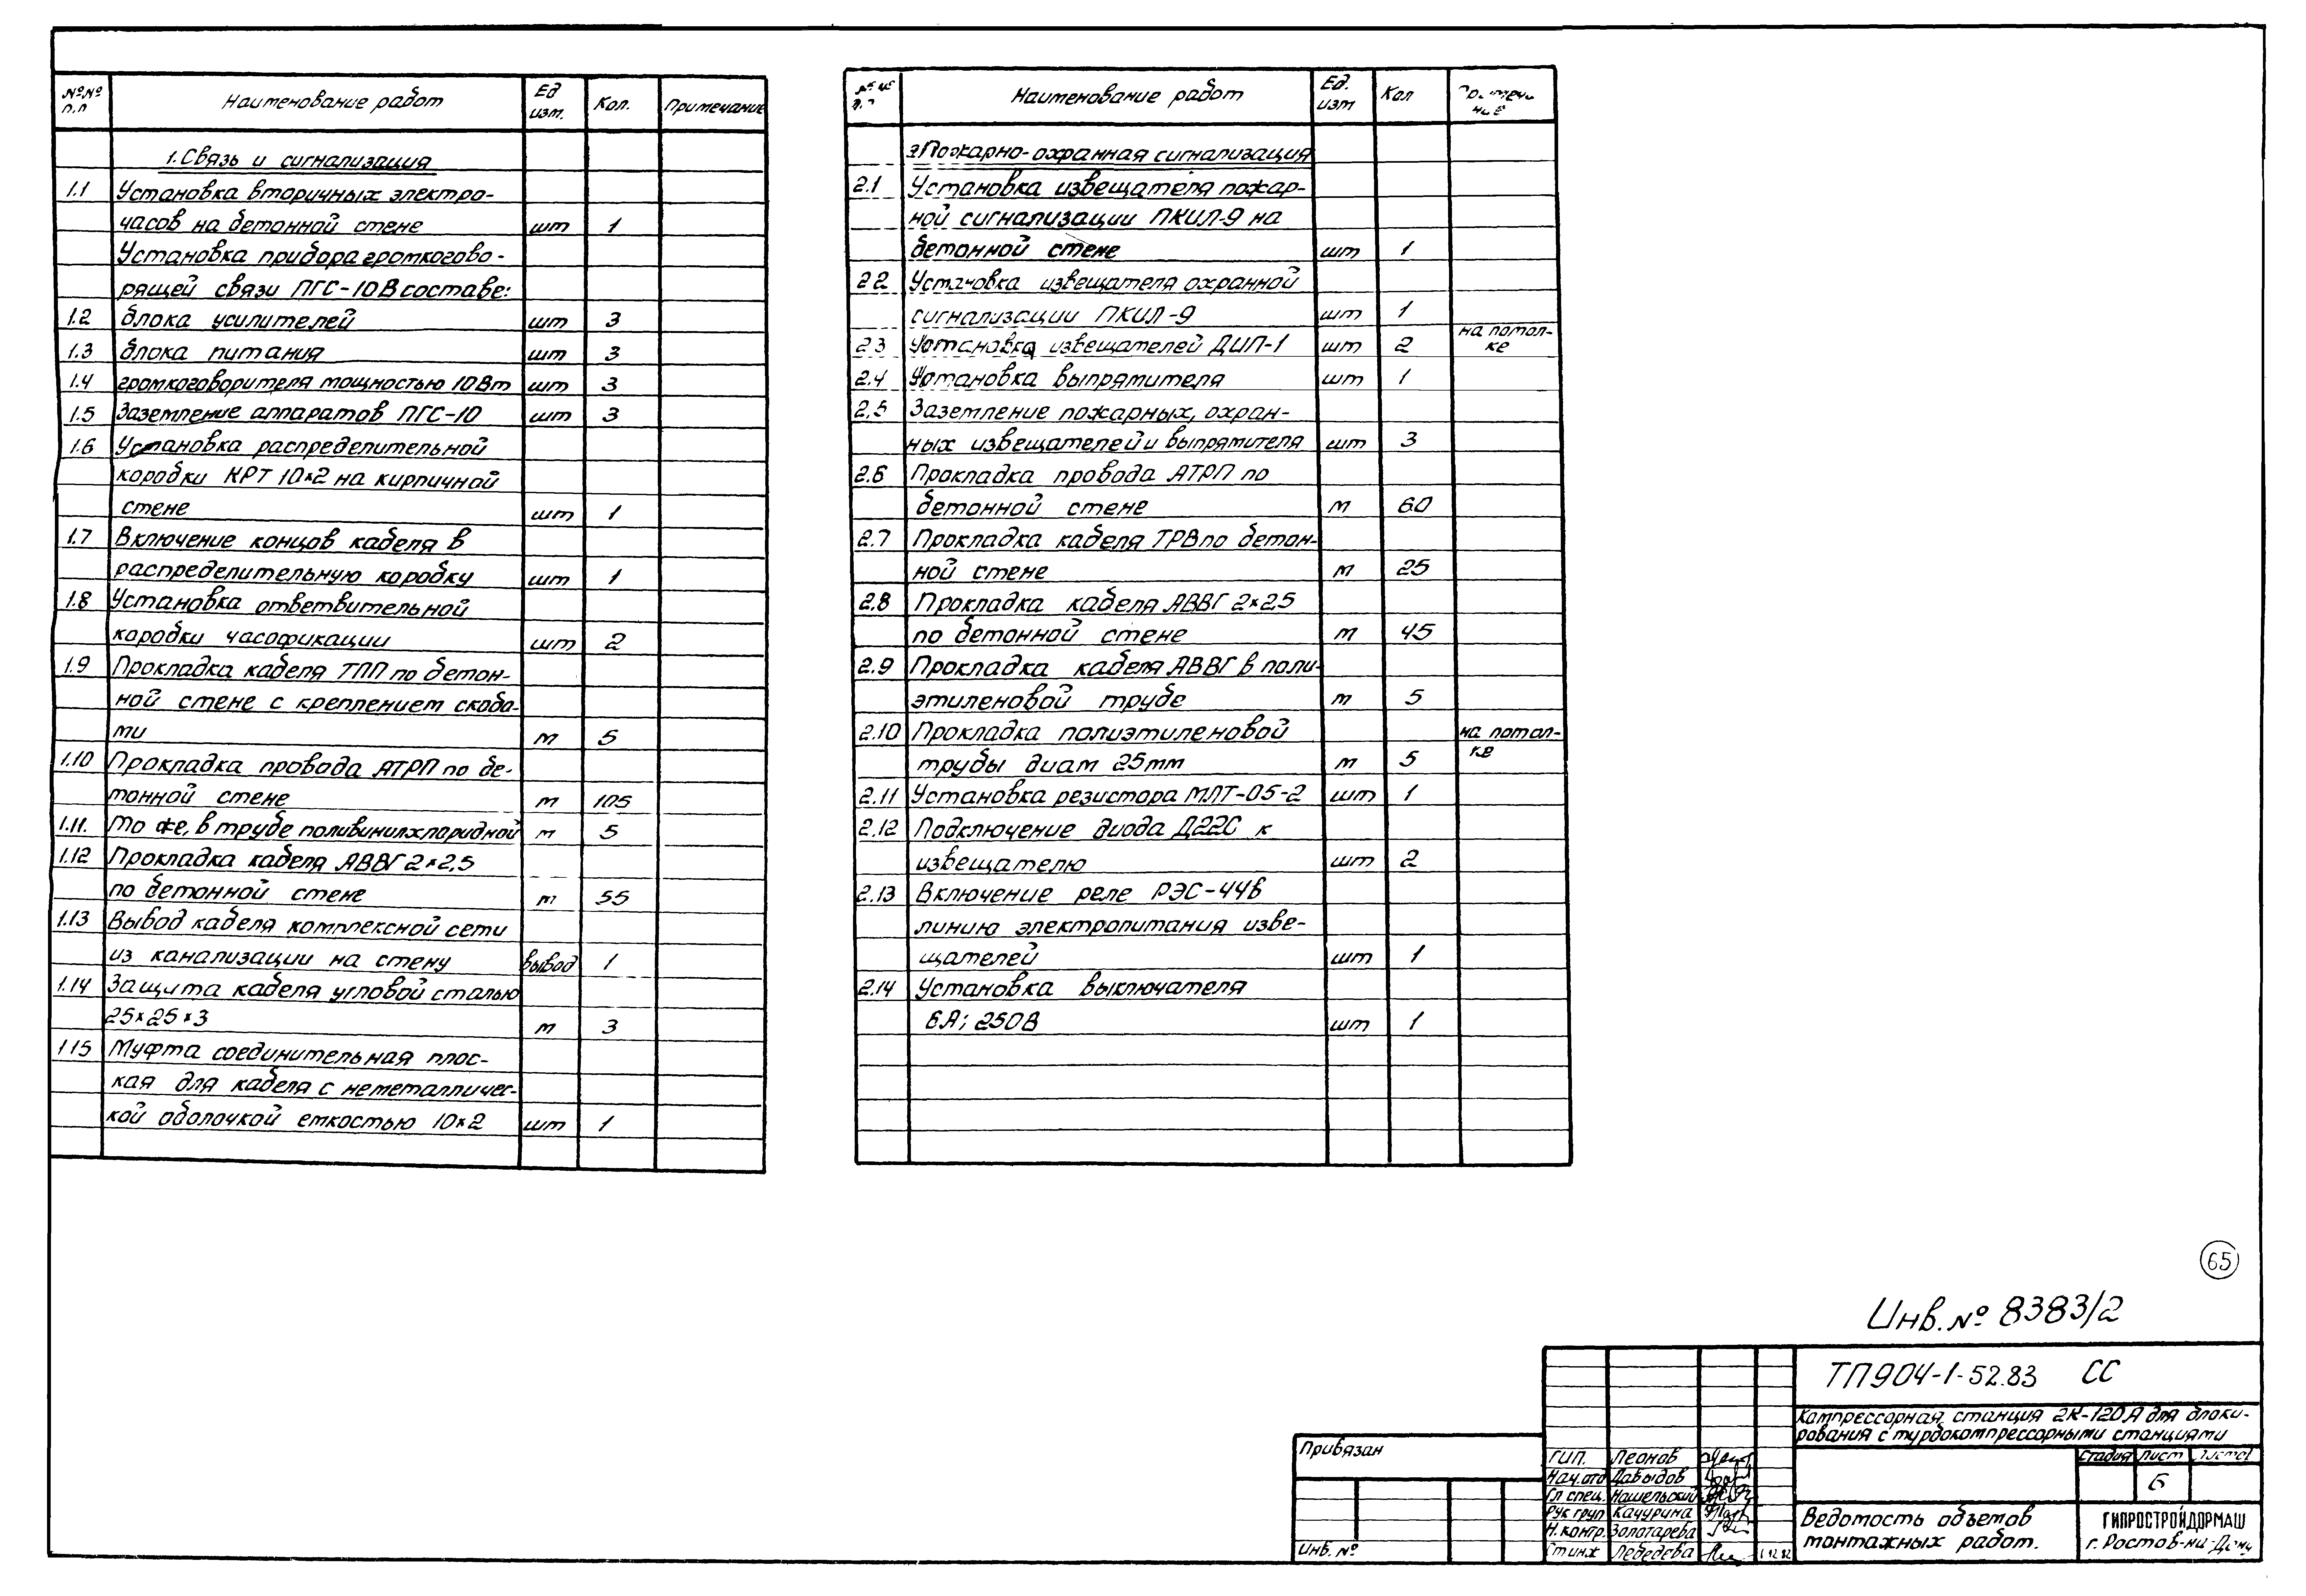 №№ Наименование работ Ед Кол. Примечание
п.п изм.
1. Связь и сигнализация
1.1 Установка вторичных электро-
часов на бетонной стене шт 1
Установка прибора громкогово-
рящей связи ПГС-10 В составе:
1.2 блока усилителей шт 3
1.3 блока питания шт 3
1.4 громкоговорителя мощностью 10Вт шт 3
1.5 Заземление аппаратов ПГС-10 шт 3
1.6 Установка распределительной
коробки КРТ 10×2 на кирпичной
стене шт 1
1.7 Включение концов кабеля в
распределительную коробку шт 1
1.8 Установка ответвительной
коробки часофикации шт 2
1.9 Прокладка кабеля ТПП по бетон-
ной стене с креплением скоба-
ми м 5
1.10 Прокладка провода АТРП по бе-
тонной стене м 105
1.11. То же, в трубе поливинилхлоридной м 5
1.12 Прокладка кабеля АВВГ 2×2,5
по бетонной стене м 55
1.13 Вывод кабеля комплексной сети
из канализации на стену вывод 1
1.14 Защита кабеля угловой сталью
25×25×3 м 3
1.15 Муфта соединительная плос-
кая для кабеля с неметалличес-
кой оболочкой емкостью 10×2 шт 1
№№ Наименование работ Ед. Кол Примеча
п.п изм ние
Пожарно-охранная сигнализация
2.1 Установка извещателя пожар-
ной сигнализации ПКИЛ-9 на
бетонной стене шт 1
2.2 Установка извещателя охранной
сигнализации ПКИЛ-9 шт 1
2.3 Установка извещателей ДИП-1 шт 2 на потол-
ке
2.4 Установка выпрямителя шт 1
2.5 Заземление пожарных, охран-
ных извещателей и выпрямителя шт 3
2.6 Прокладка провода АТРП по
бетонной стене м 60
2.7 Прокладка кабеля ТРВ по бетон-
ной стене м 25
2.8 Прокладка кабеля АВВГ 2×2,5
по бетонной стене м 45
2.9 Прокладка кабеля АВВГ в поли-
этиленовой трубе м 5
2.10 Прокладка полиэтиленовой на потол-
трубы диам 25мм м 5 ке
2.11 Установка резистора МЛТ-05-2 шт 1
2.12 Подключение диода Д22С к
извещателю шт 2
2.13 Включение реле РЭС-44 в
линию электропитания изве-
щателей шт 1
2.14 Установка выключателя
6А; 250В шт 1
65
Инв. № 8383/2
ТП904-1-52.83 СС
Компрессорная станция 2К-120А для блоки-
рования с турбокомпрессорными станциями
Привязан
Инв. №
ГИП. Леонов
Нач.отд Давыдов
Гл спец. Нашельский
Рук груп Качурина
Н.контр. Золотарева
Ст инж Лебедева
Стадия Лист Листов
6
Ведомость объемов
монтажных работ.
ГИПРОСТРОЙДОРМАШ
г. Ростов-на-Дону